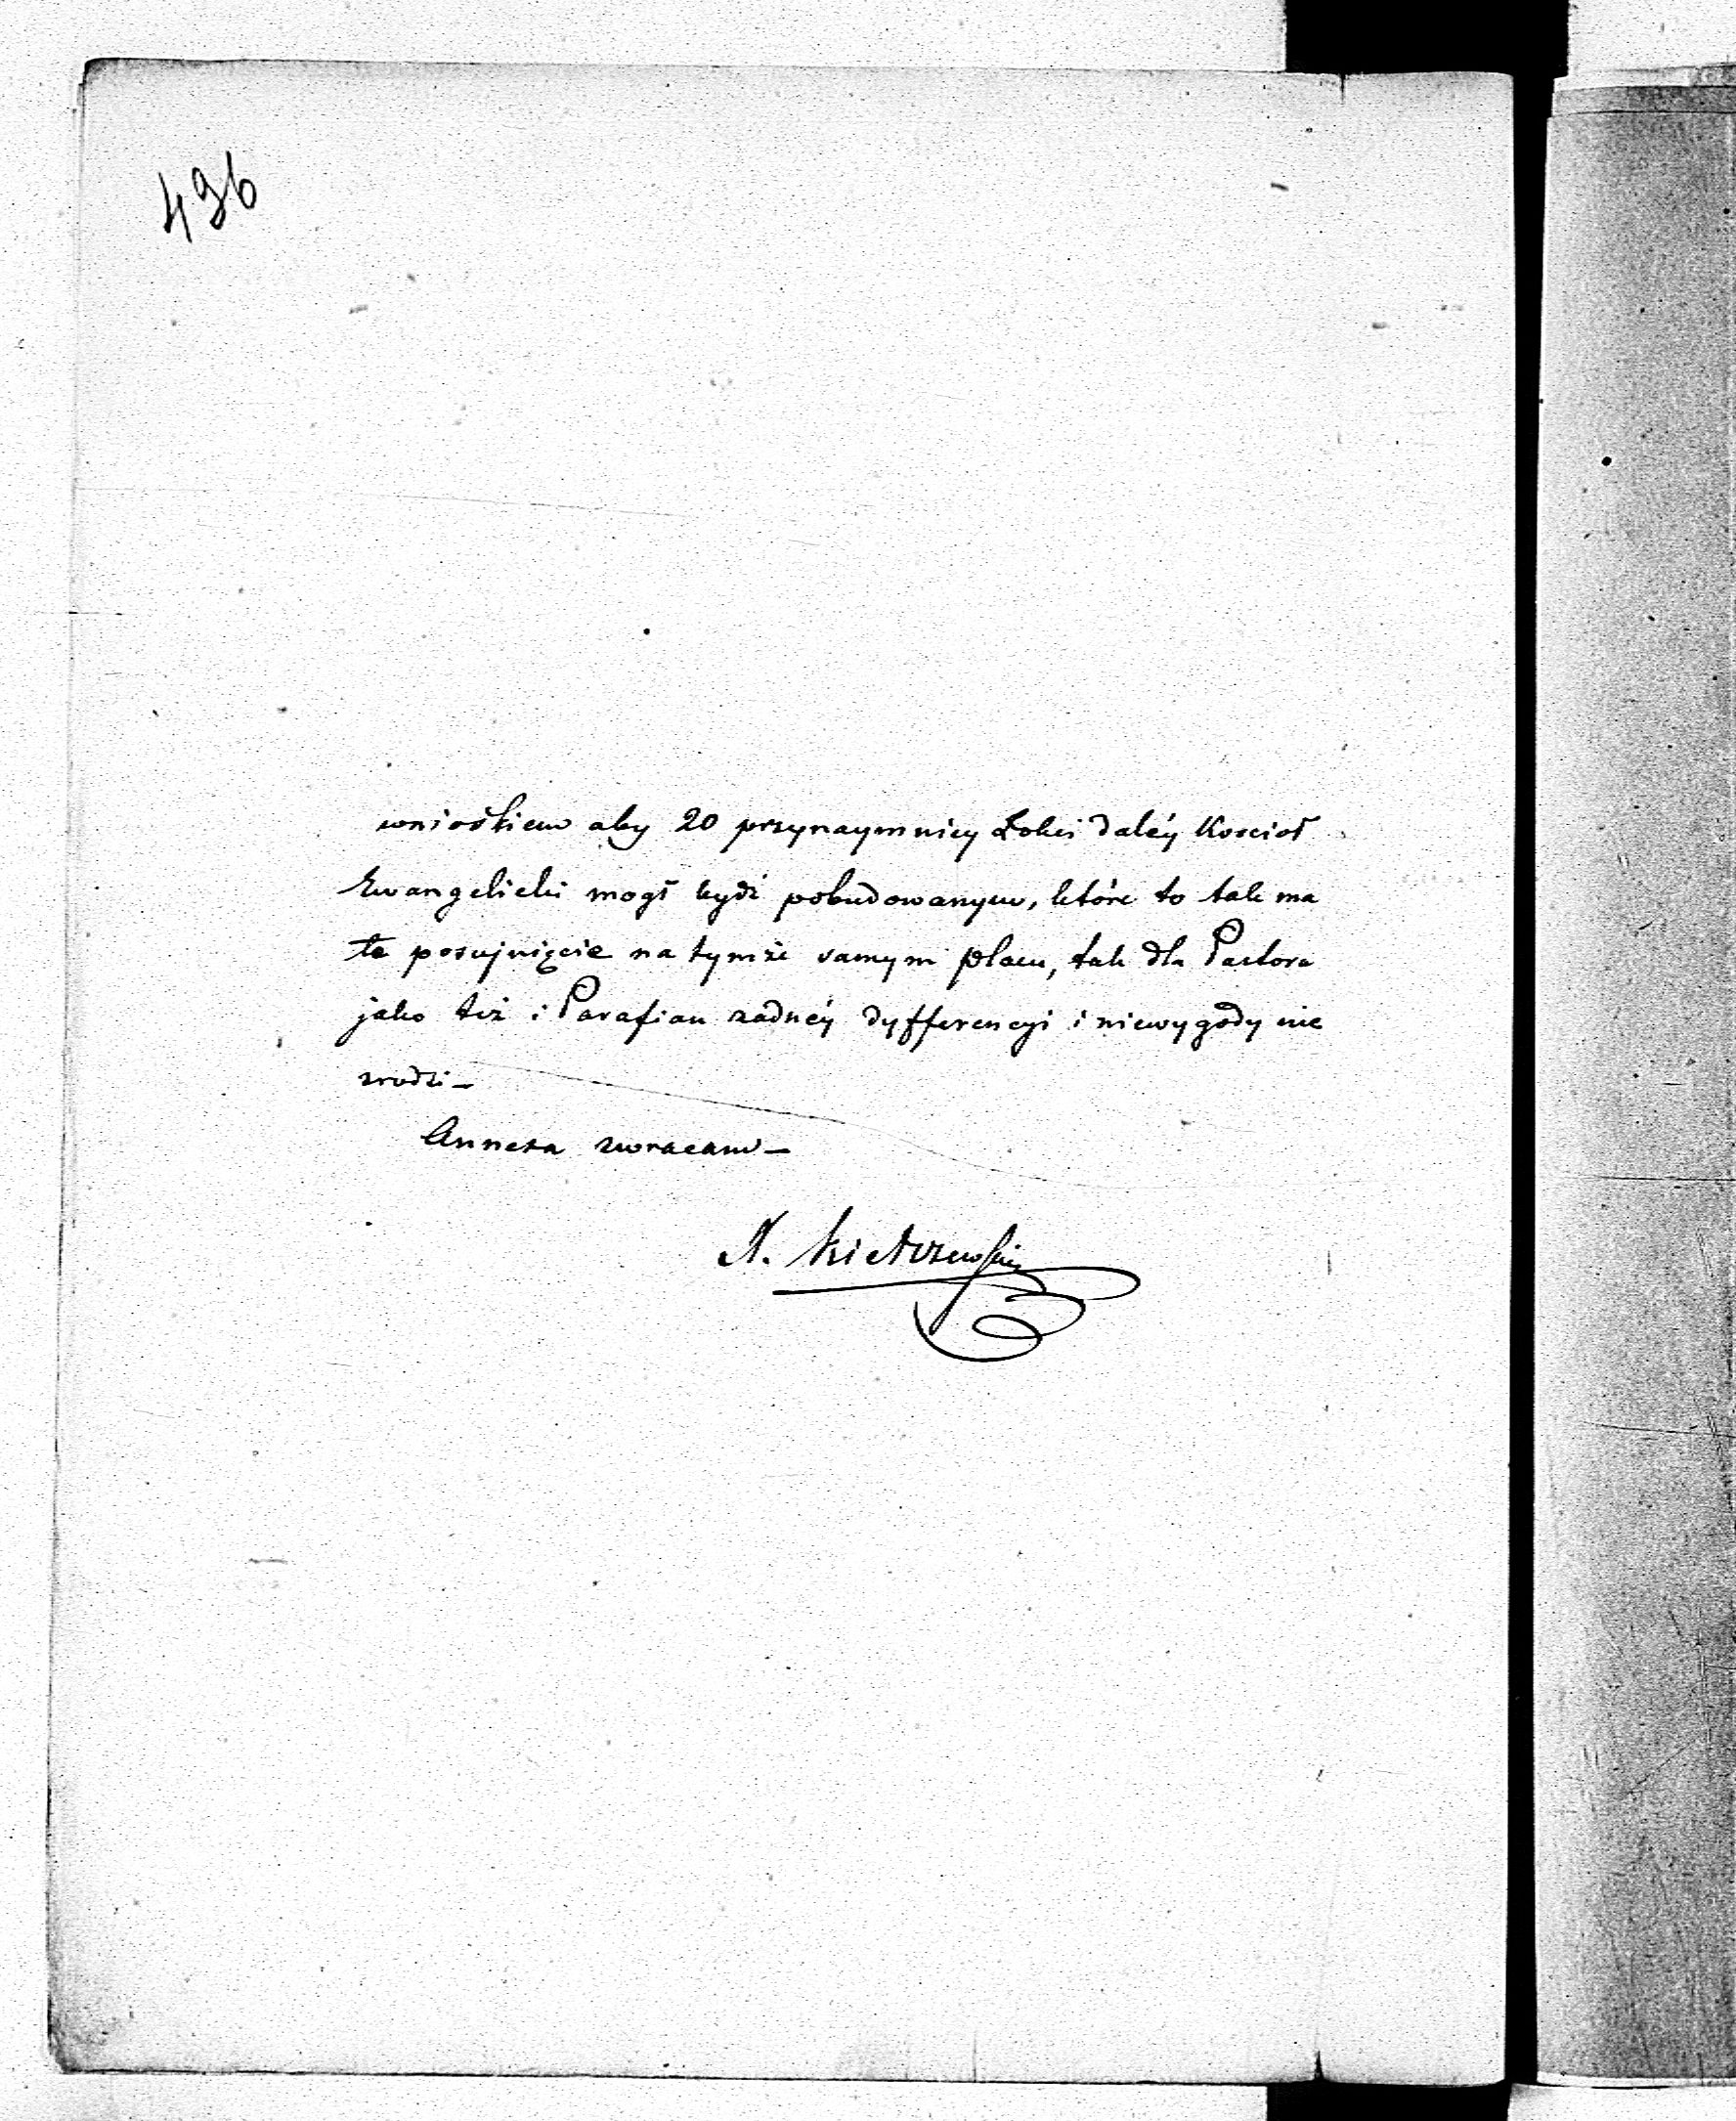 496
wnioskiem aby 20 przynaymniey Łokci daléy Kościoł
Ewangelicki mogł bydź pobudowanym, które to tak ma
łe posujnięcie na tymże samym placu, tak dla Pastora
jako też i Parafian żadnéy dyfferencyi i niewygody nie
zrodzi –
Annexa zwracam –
Kietrzewski